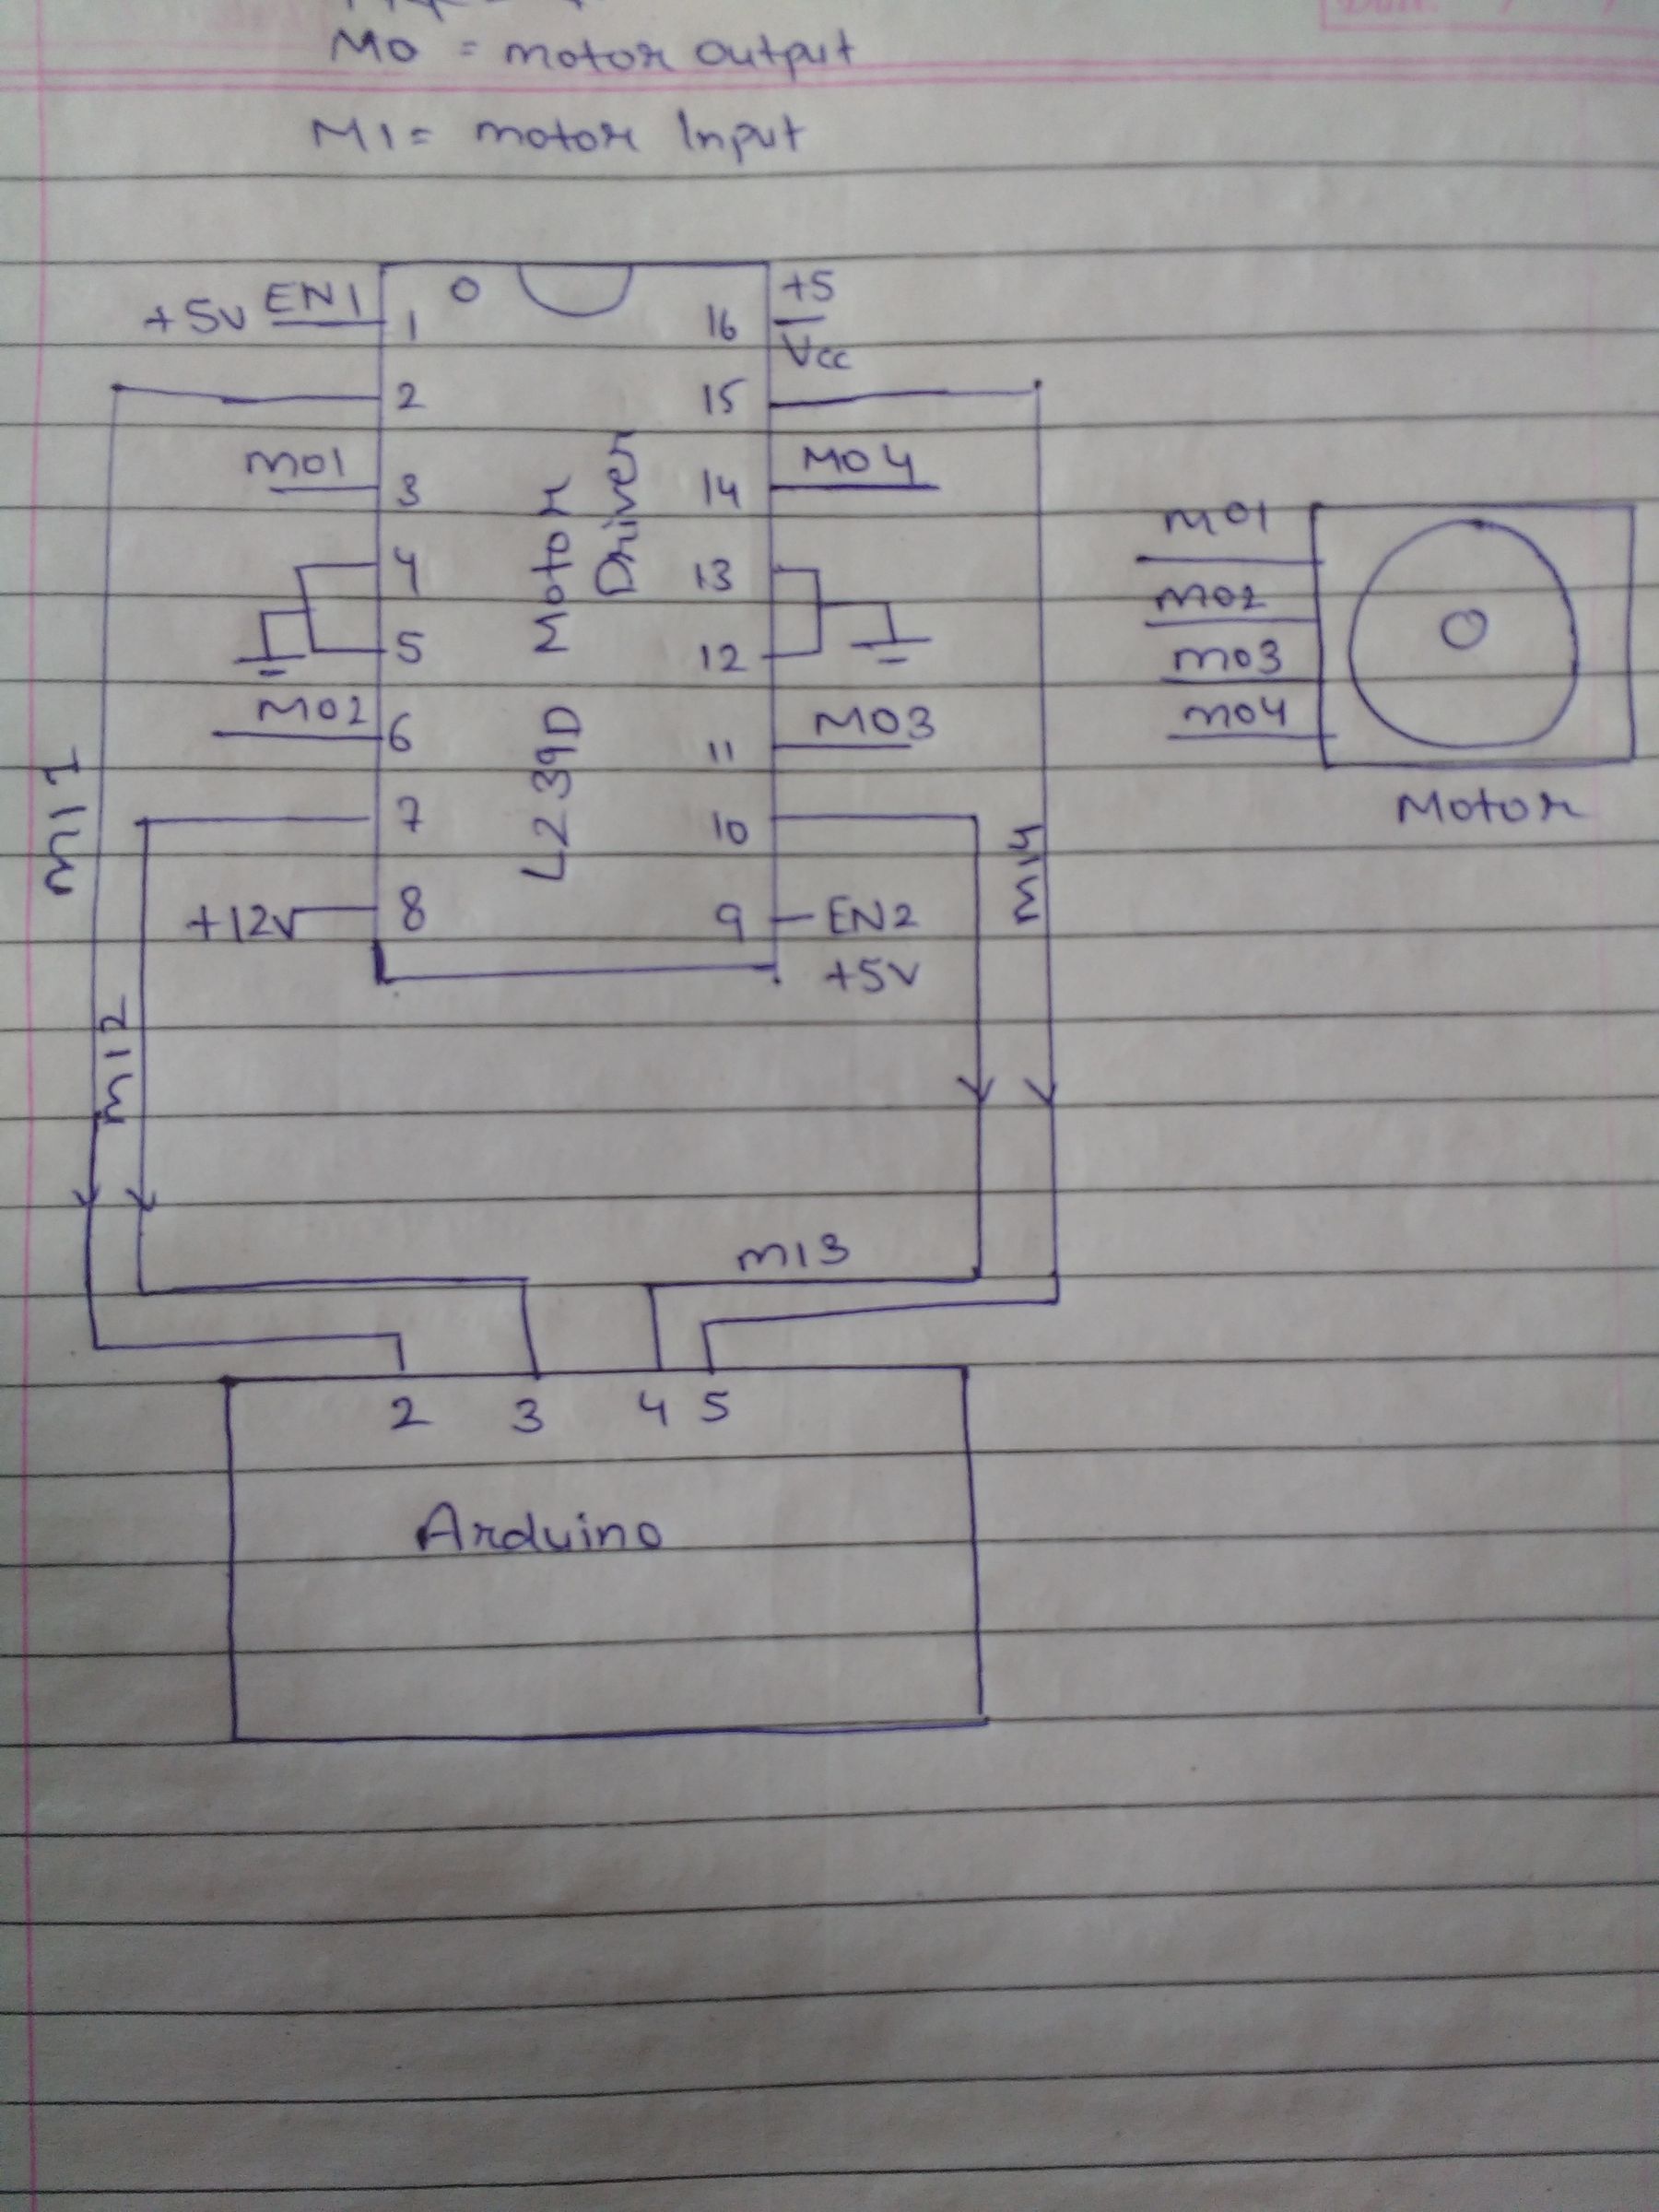 MO = motor output
MI = motor Input
+5V EN1
1
2
MO1
3
4
5
MO2
6
7
+12V
8
Motor
Driver
L239D
16
+5
Vcc
15
14
MO4
13
12
11
MO3
10
9
EN2
+5V
MI1
MI2
MI4
MI3
MO1
MO2
MO3
MO4
Motor
2 3 4 5
Arduino